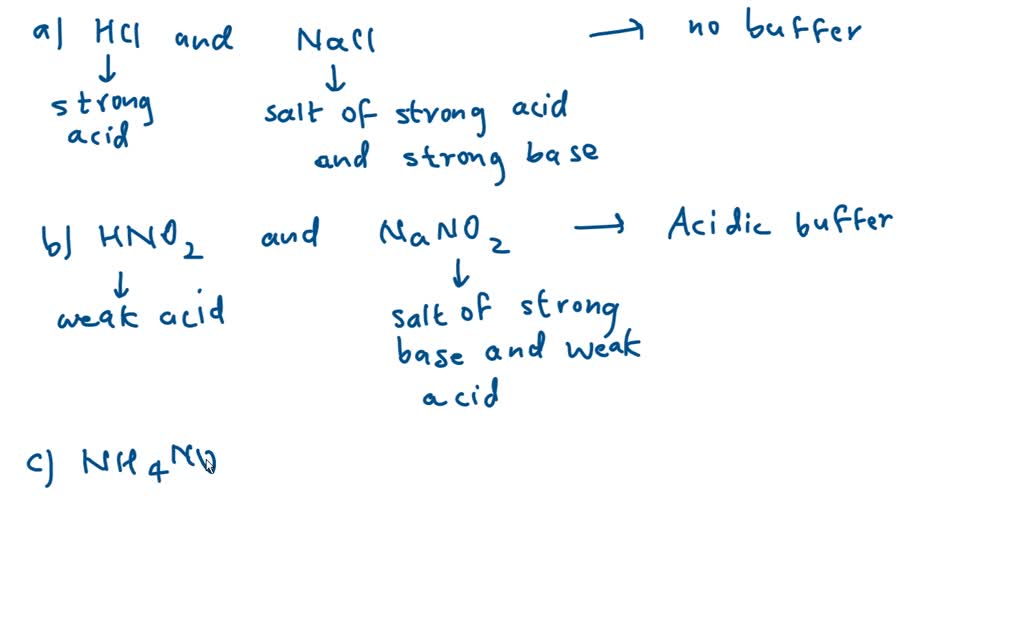 a) HCl and NaCl → no buffer
↓ ↓
strong acid salt of strong acid and strong base
b) HNO₂ and NaNO₂ → Acidic buffer
↓ ↓
weak acid salt of strong base and weak acid
c) NH₄NO